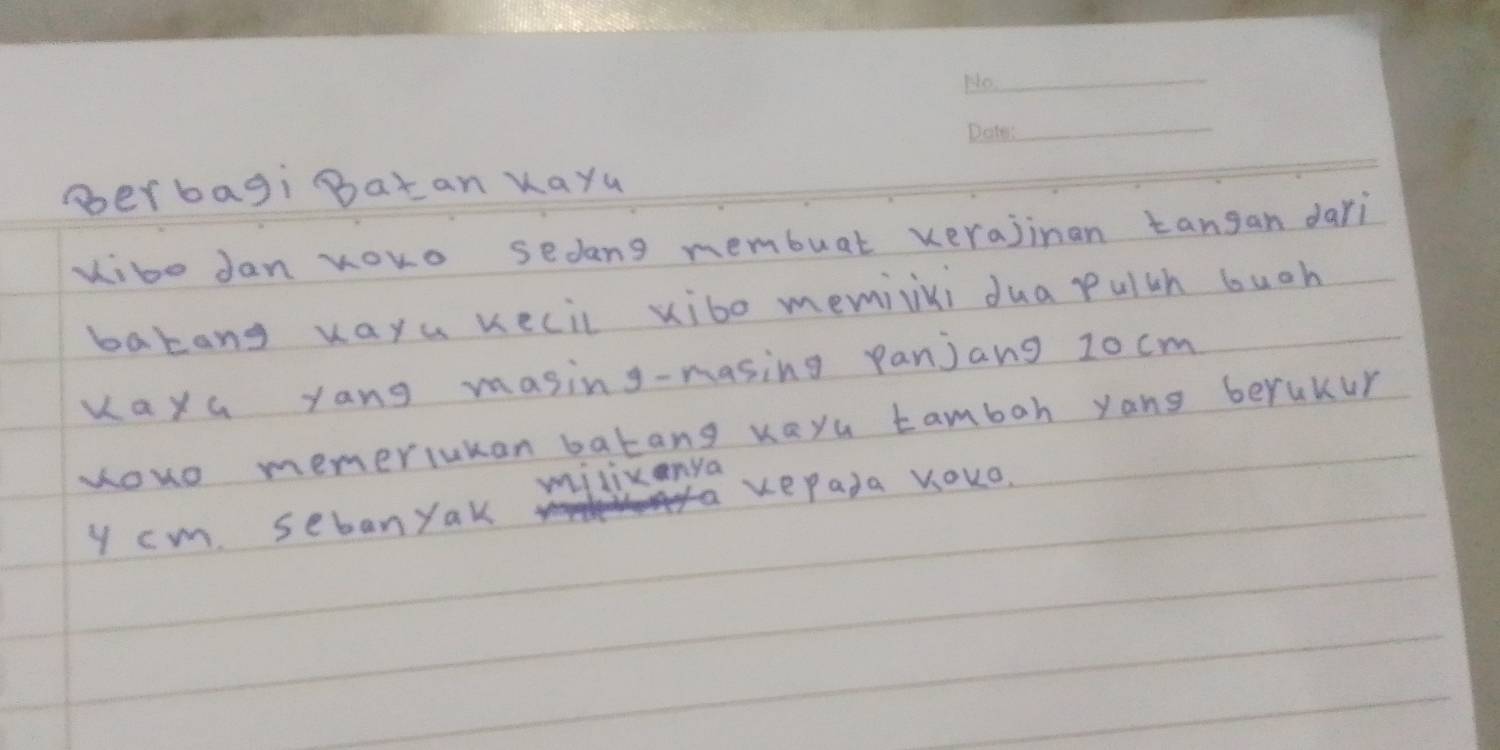 No.
Date:
Berbagi Batan kayu
kibo dan koko sedang membuat kerajinan tangan dari
batang kayu kecil kibo memiliki dua puluh buah
kayu yang masing-masing panjang 10 cm
koko memerlukan batang kayu tambah yang berukur
4 cm. sebanyak milikanya kepada koko.